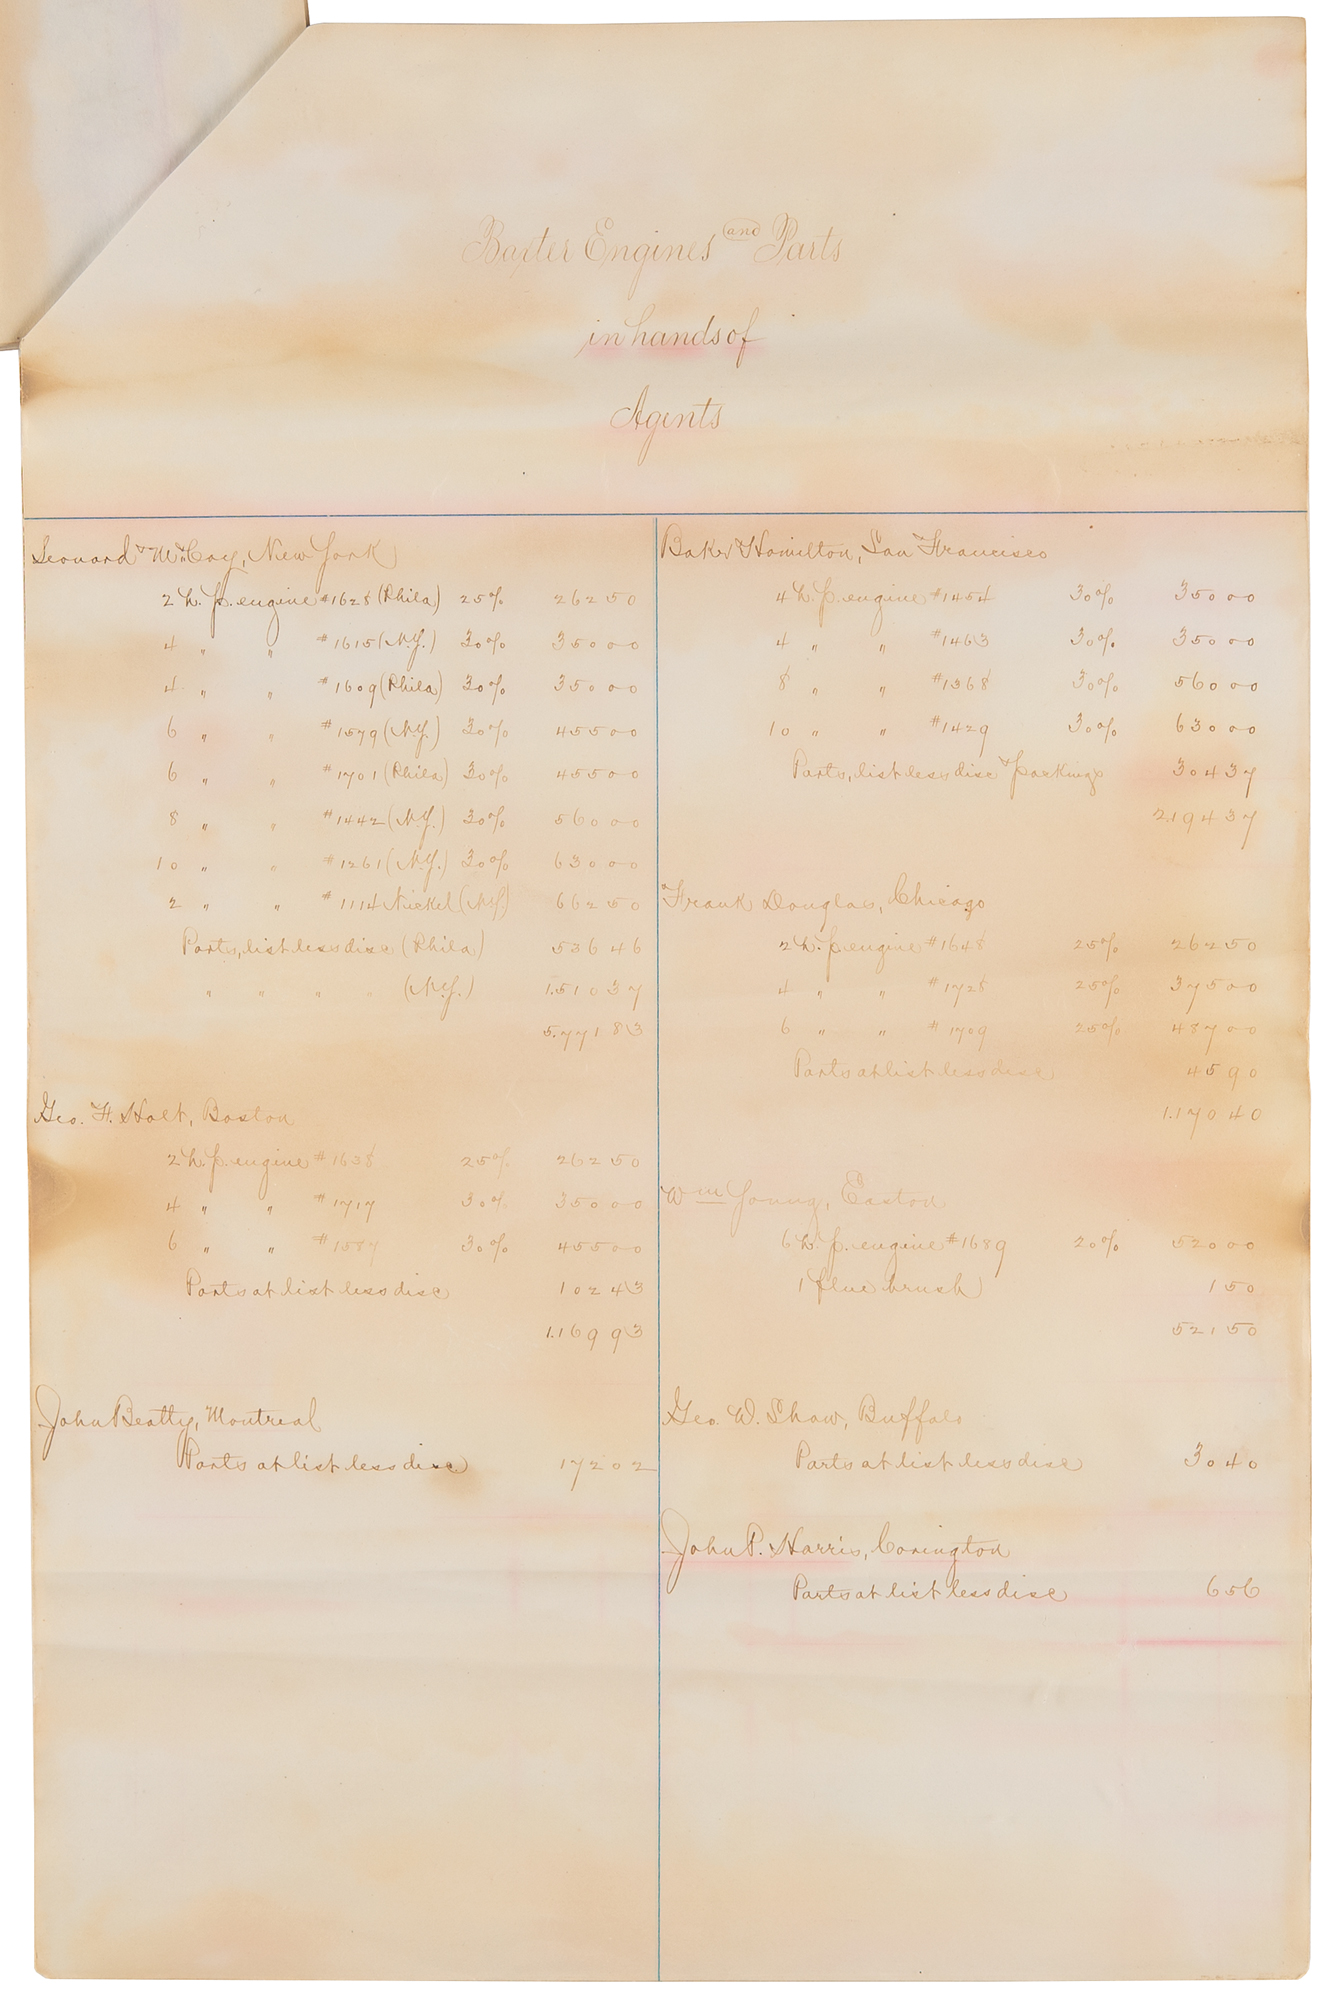 Baxter Engines and Parts
in hands of
Agents
Leonard & McCoy, New York
2 h. p. engine #1628 (Phila) 25% 262 50
4 " " #1615 (N.Y.) 30% 350 00
4 " " #1609 (Phila) 30% 350 00
6 " " #1579 (N.Y.) 30% 455 00
6 " " #1701 (Phila) 30% 455 00
8 " " #1442 (N.Y.) 30% 560 00
10 " " #1261 (N.Y.) 30% 630 00
2 " " #1114 Nickel (N.Y) 662 50
Parts, list less disc (Phila) 536 46
" " " " (N.Y.) 1.510 37
5.771 83
Geo. F. Holt, Boston
2 h. p. engine #1638 25% 262 50
4 " " #1717 30% 350 00
6 " " #1587 30% 455 00
Parts at list less disc 102 43
1.169 93
John Beatty, Montreal
Parts at list less disc 172 02
Baker & Hamilton, San Francisco
4 h. p. engine #1454 30% 350 00
4 " " #1463 30% 350 00
8 " " #1368 30% 560 00
10 " " #1429 30% 630 00
Parts, list less disc & packing 304 37
2.194 37
Frank Douglas, Chicago
2 h. p. engine #1648 25% 262 50
4 " " #1728 25% 375 00
6 " " #1709 25% 487 00
Parts at list less disc 45 90
1.170 40
Wm Young, Easton
6 h. p. engine #1689 20% 520 00
1 flue brush 1 50
521 50
Geo. W. Shaw, Buffalo
Parts at list less disc 30 40
John P. Harris, Covington
Parts at list less disc 6 56